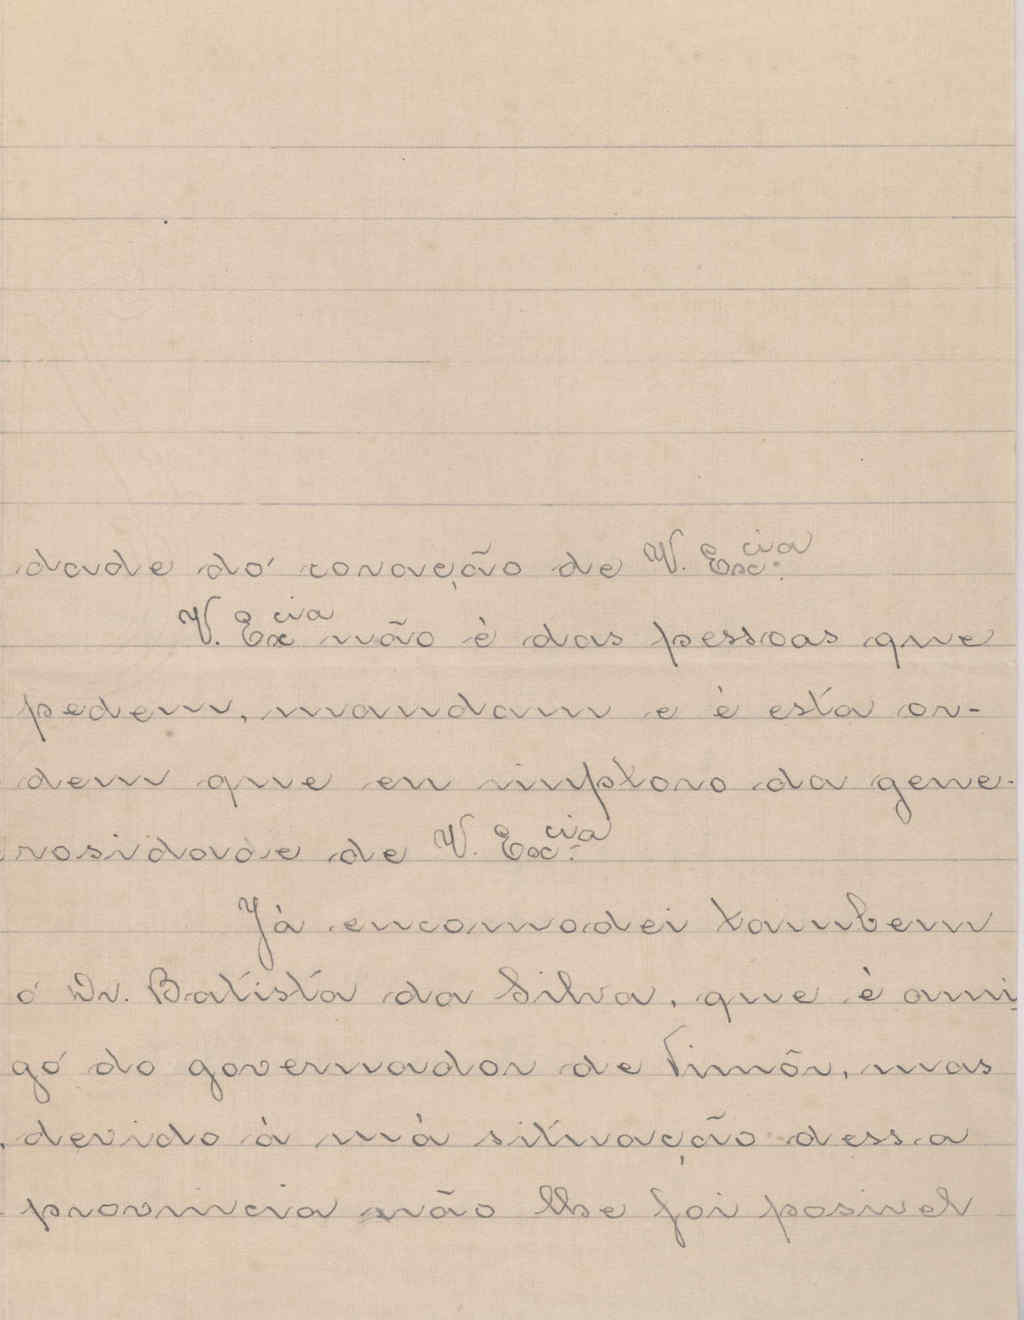 dade do coração de V. Exc.cia
V. Excia não è das pessoas que
pedem, mandam e è esta or-
dem que eu imploro da gene-
rosidade de V. Exc.cia
Jà encomodei tambem
o Dr. Batista da Silva, que è ami
go do governador de Timôr, mas
devido à mà situação dessa
provincia não lhe foi posivel